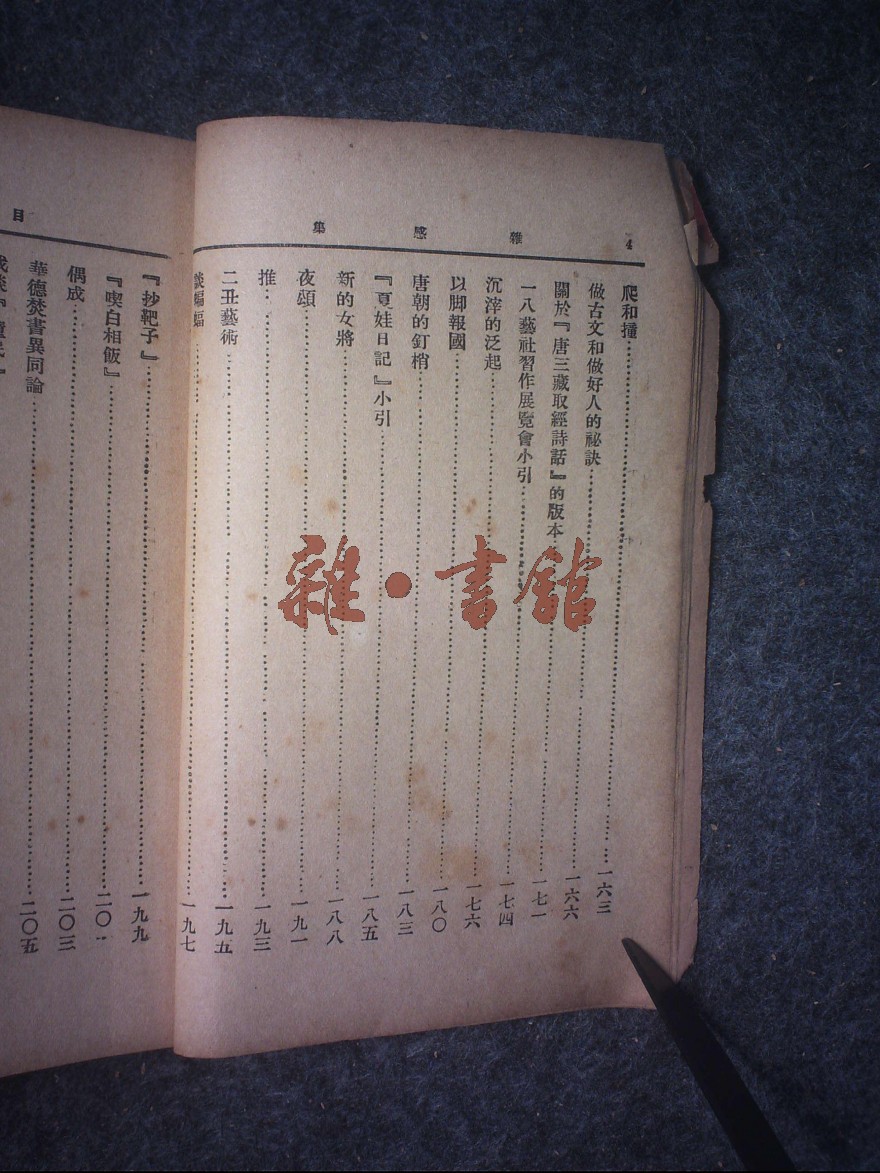 4 雜感集
爬和撞……一六三
做古文和做好人的祕訣……一六六
關於『唐三藏取經詩話』的版本……一七一
一八藝社習作展覽會小引……一七四
沉滓的泛起……一七六
以脚報國……一八〇
唐朝的釘梢……一八三
『夏娃日記』小引……一八五
新的女將……一八八
夜頌……一九一
推……一九三
二丑藝術……一九五
談蝙蝠……一九七
目
『抄靶子』……一九九
『喫白相飯』……二〇一
偶成……二〇三
華德焚書異同論……二〇五
雜·書館